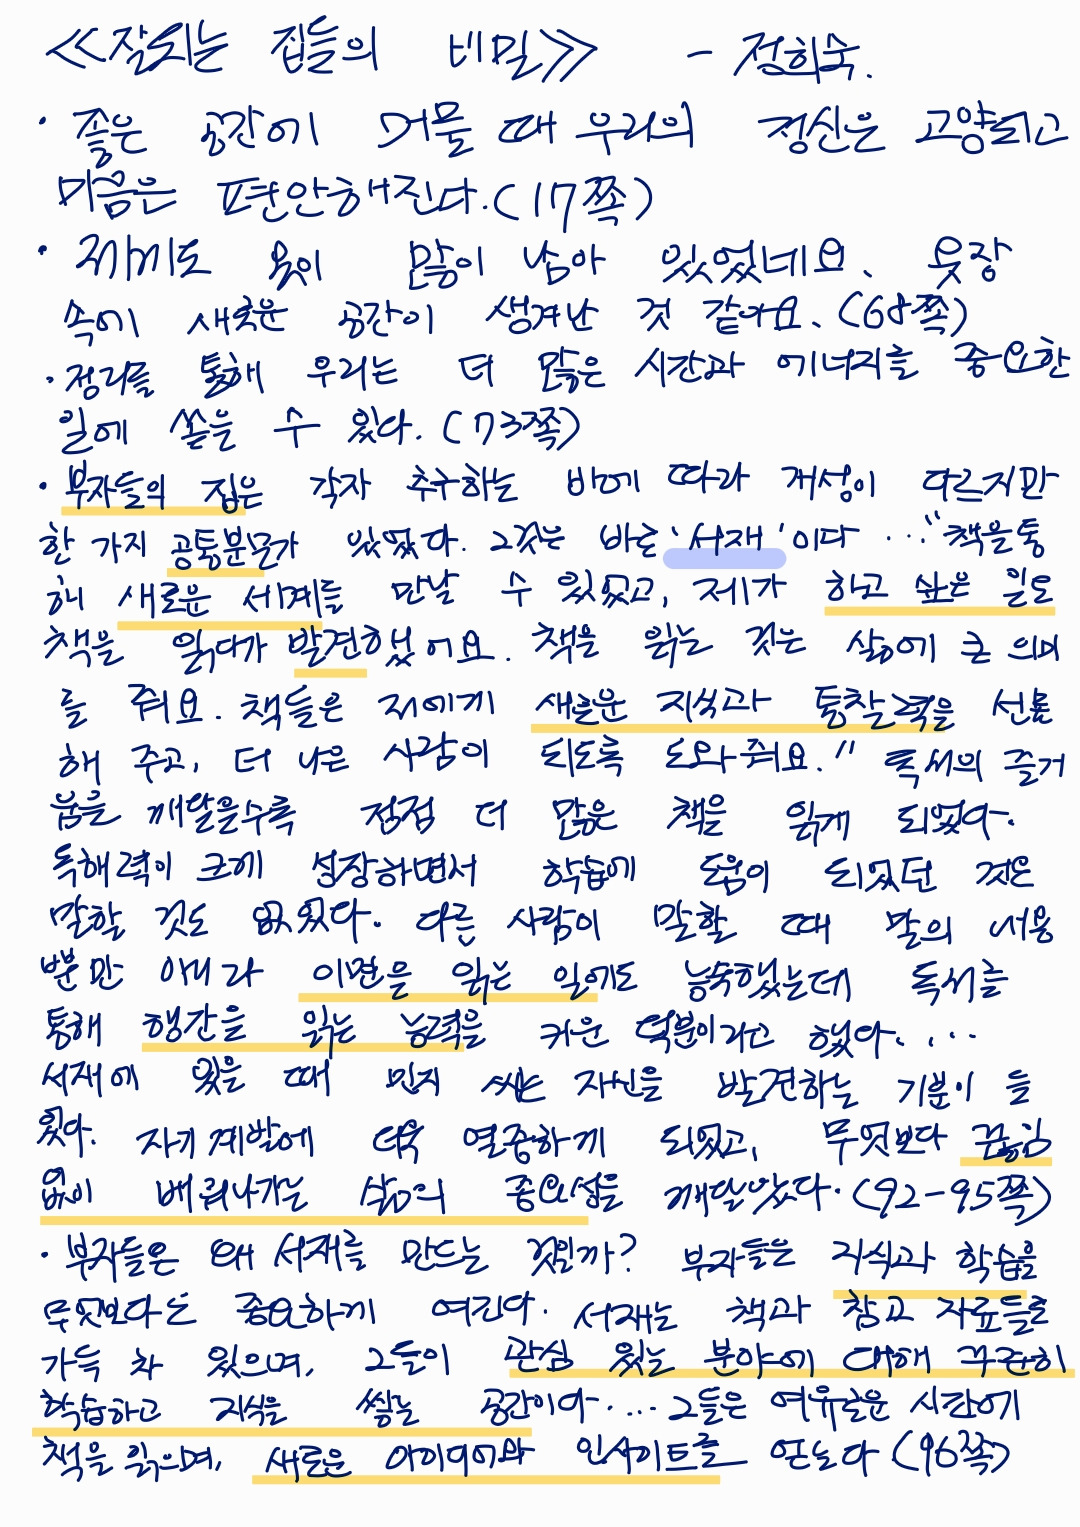 <<잘되는 집들의 비밀>> - 정희숙.
· 좋은 공간에 머물 때 우리의 정신은 고양되고
마음은 편안해진다.(17쪽)
· 제게도 옷이 많이 남아 있었네요. 옷장
속에 새로운 공간이 생겨난 것 같아요.(68쪽)
· 정리를 통해 우리는 더 많은 시간과 에너지를 중요한
일에 쏟을 수 있다.(73쪽)
· 부자들의 집은 각자 추구하는 바에 따라 개성이 다르지만
한 가지 공통분모가 있었다. 그것은 바로 '서재'이다 ..."책을 통
해 새로운 세계를 만날 수 있었고, 제가 하고 싶은 일도
책을 읽다가 발견했어요. 책을 읽는 것는 삶에 큰 의미
를 줘요. 책들은 저에게 새로운 지식과 통찰력을 선물
해 주고, 더 나은 사람이 되도록 도와줘요." 독서의 즐거
움을 깨달을수록 점점 더 많은 책을 읽게 되었다.
독해력이 크게 성장하면서 학습에 도움이 되었던 것은
말할 것도 없었다. 다른 사람이 말할 때 말의 내용
뿐만 아니라 이면을 읽는 일에도 능숙했는데 독서를
통해 행간을 읽는 능력을 키운 덕분이라고 했다....
서재에 있을 때 먼지 쌓인 자신을 발견하는 기분이 들
었다. 자기계발에 더욱 열중하게 되었고, 무엇보다 끊임
없이 배워나가는 삶의 중요성을 깨달았다.(92-95쪽)
· 부자들은 왜 서재를 만드는 것일까? 부자들은 지식과 학습을
무엇보다는 중요하게 여긴다. 서재는 책과 참고 자료들로
가득 차 있으며, 그들이 관심 있는 분야에 대해 꾸준히
학습하고 지식을 쌓는 공간이다.... 그들은 여유로운 시간에
책을 읽으며, 새로운 아이디어와 인사이트를 얻는다 (96쪽)